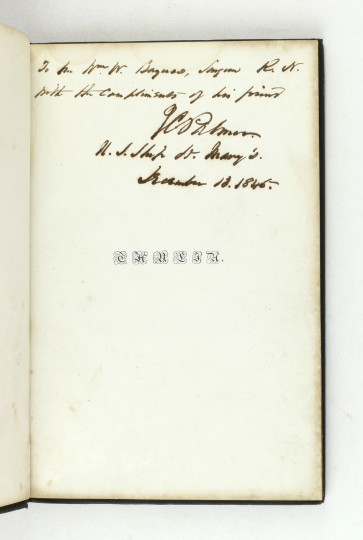 To Wm W. Surgeon R. N.
with the Compliments of his friend
J C Palmer
U. S. Ship St. Mary's.
December 13. 1846.
THULIA.